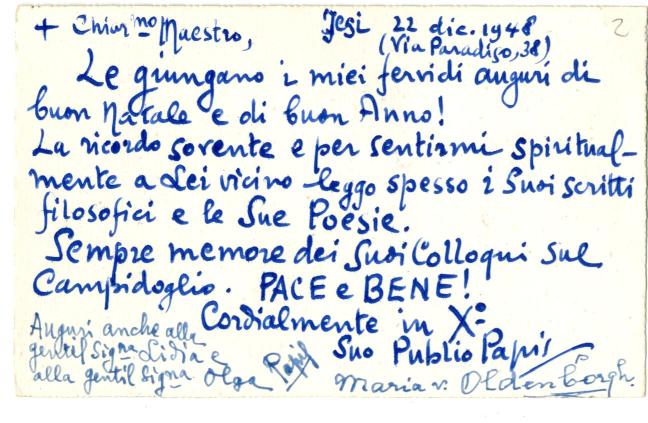 + Chiar.mo Maestro,
Jesi 22 dic. 1948
(Via Paradiso, 38)
2
Le giungano i miei fervidi auguri di
buon Natale e di buon Anno!
La ricordo sovente e per sentirmi spiritual-
mente a Lei vicino leggo spesso i Suoi scritti
filosofici e le Sue Poesie.
Sempre memore dei Suoi Colloqui sul
Campidoglio. PACE e BENE!
Cordialmente in X°
Suo Publio Papis
Maria v. Oldenborgh.
Auguri anche alla
gentil Sigra Lidia e
alla gentil Signa Olga
Papis